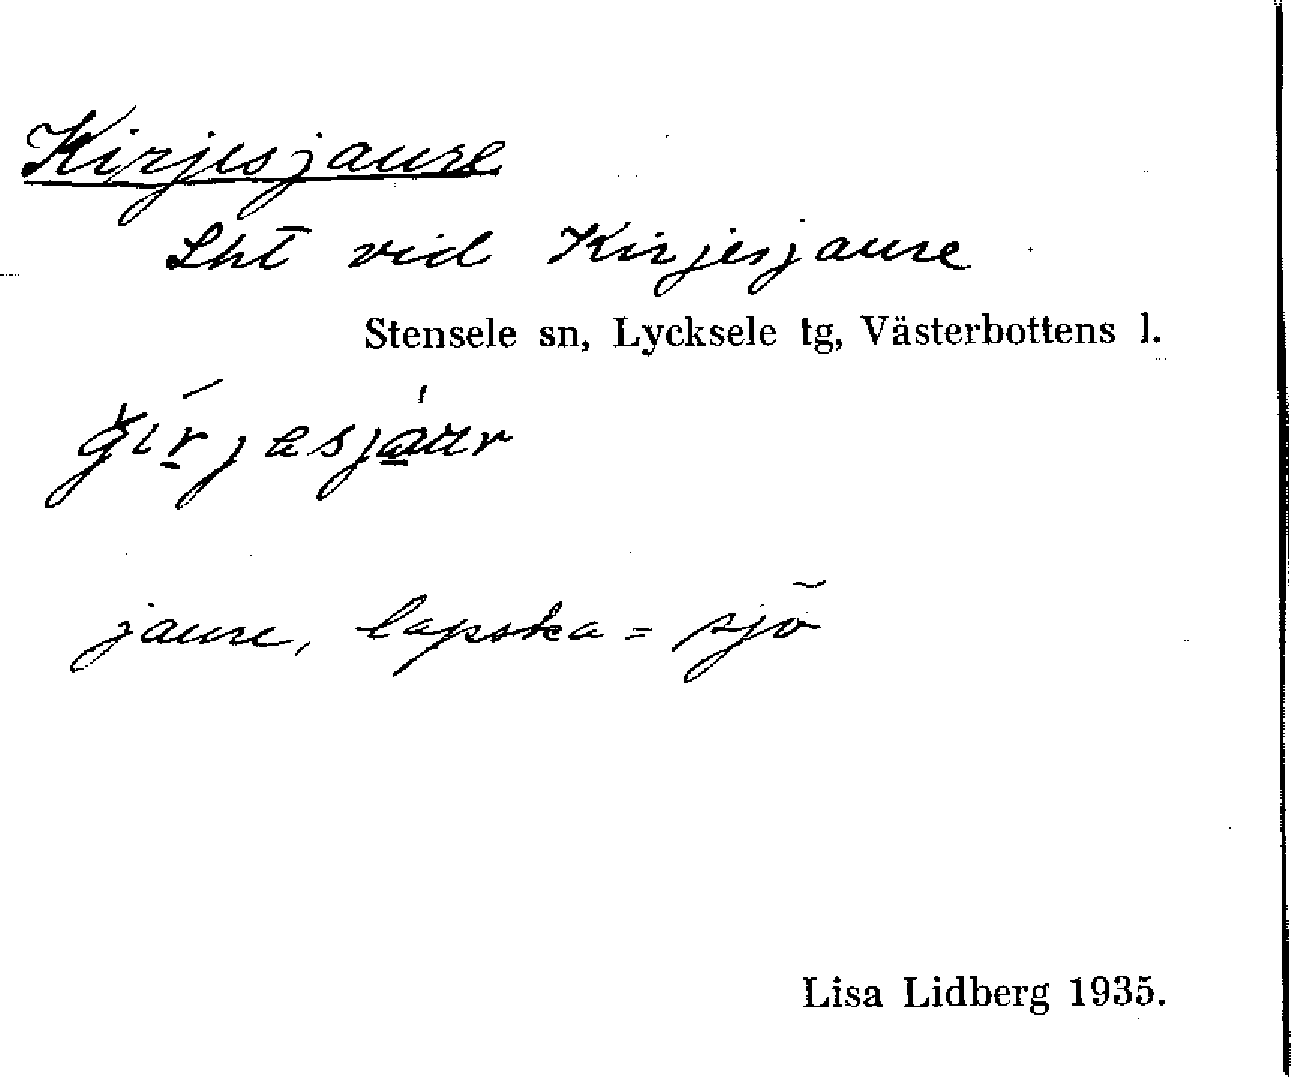 Kirjesjaure
Lht vid Kirjesjaure
Stensele sn, Lycksele tg, Västerbottens l.
jaure, lapska = sjö
Lisa Lidberg 1935.